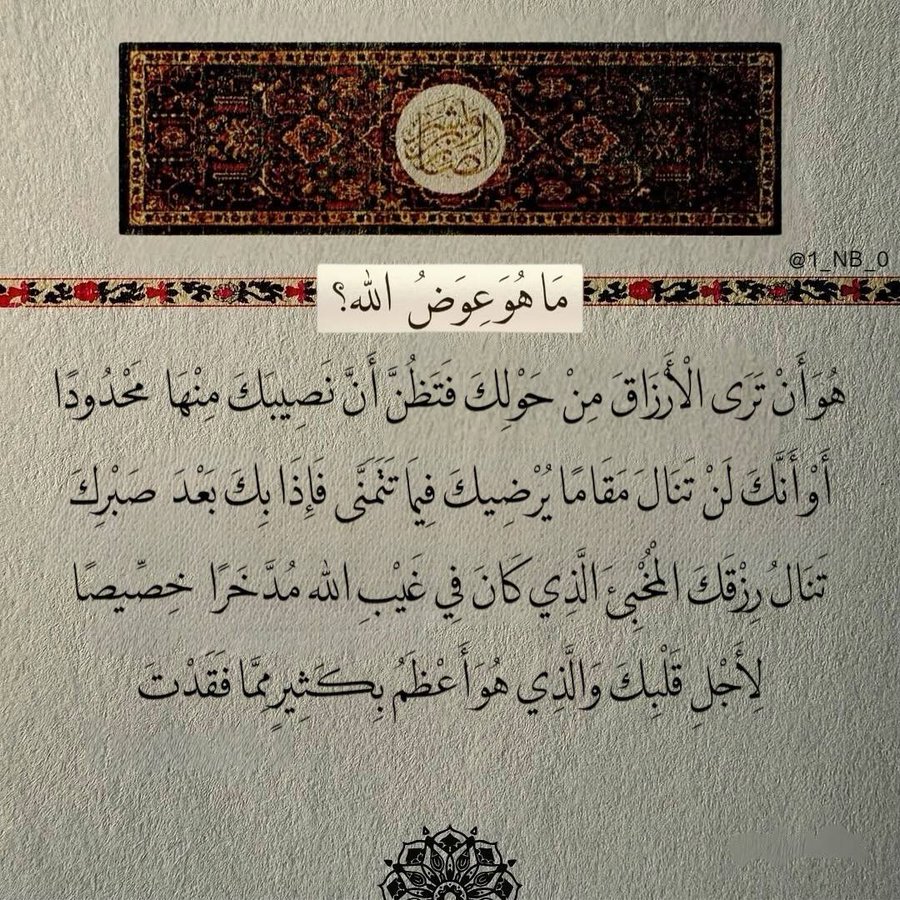 وبشر الصابرين
@1_NB_0
مَا هُوَ عِوَضُ الله؟
هُوَ أَنْ تَرَى الْأَرْزَاقَ مِنْ حَوْلِكَ فَتَظُنَّ أَنَّ نَصِيبَكَ مِنْهَا مَحْدُودًا
أَوْ أَنَّكَ لَنْ تَنَالَ مَقَامًا يُرْضِيكَ فِيمَا تَتَمَنَّى فَإِذَا بِكَ بَعْدَ صَبْرِكَ
تَنَالُ رِزْقَكَ الْمُخْبِئَ الَّذِي كَانَ فِي غَيْبِ الله مُدَّخَرًا خِصِّيصًا
لِأَجْلِ قَلْبِكَ وَالَّذِي هُوَ أَعْظَمُ بِكَثِيرٍ مِمَّا فَقَدْتَ